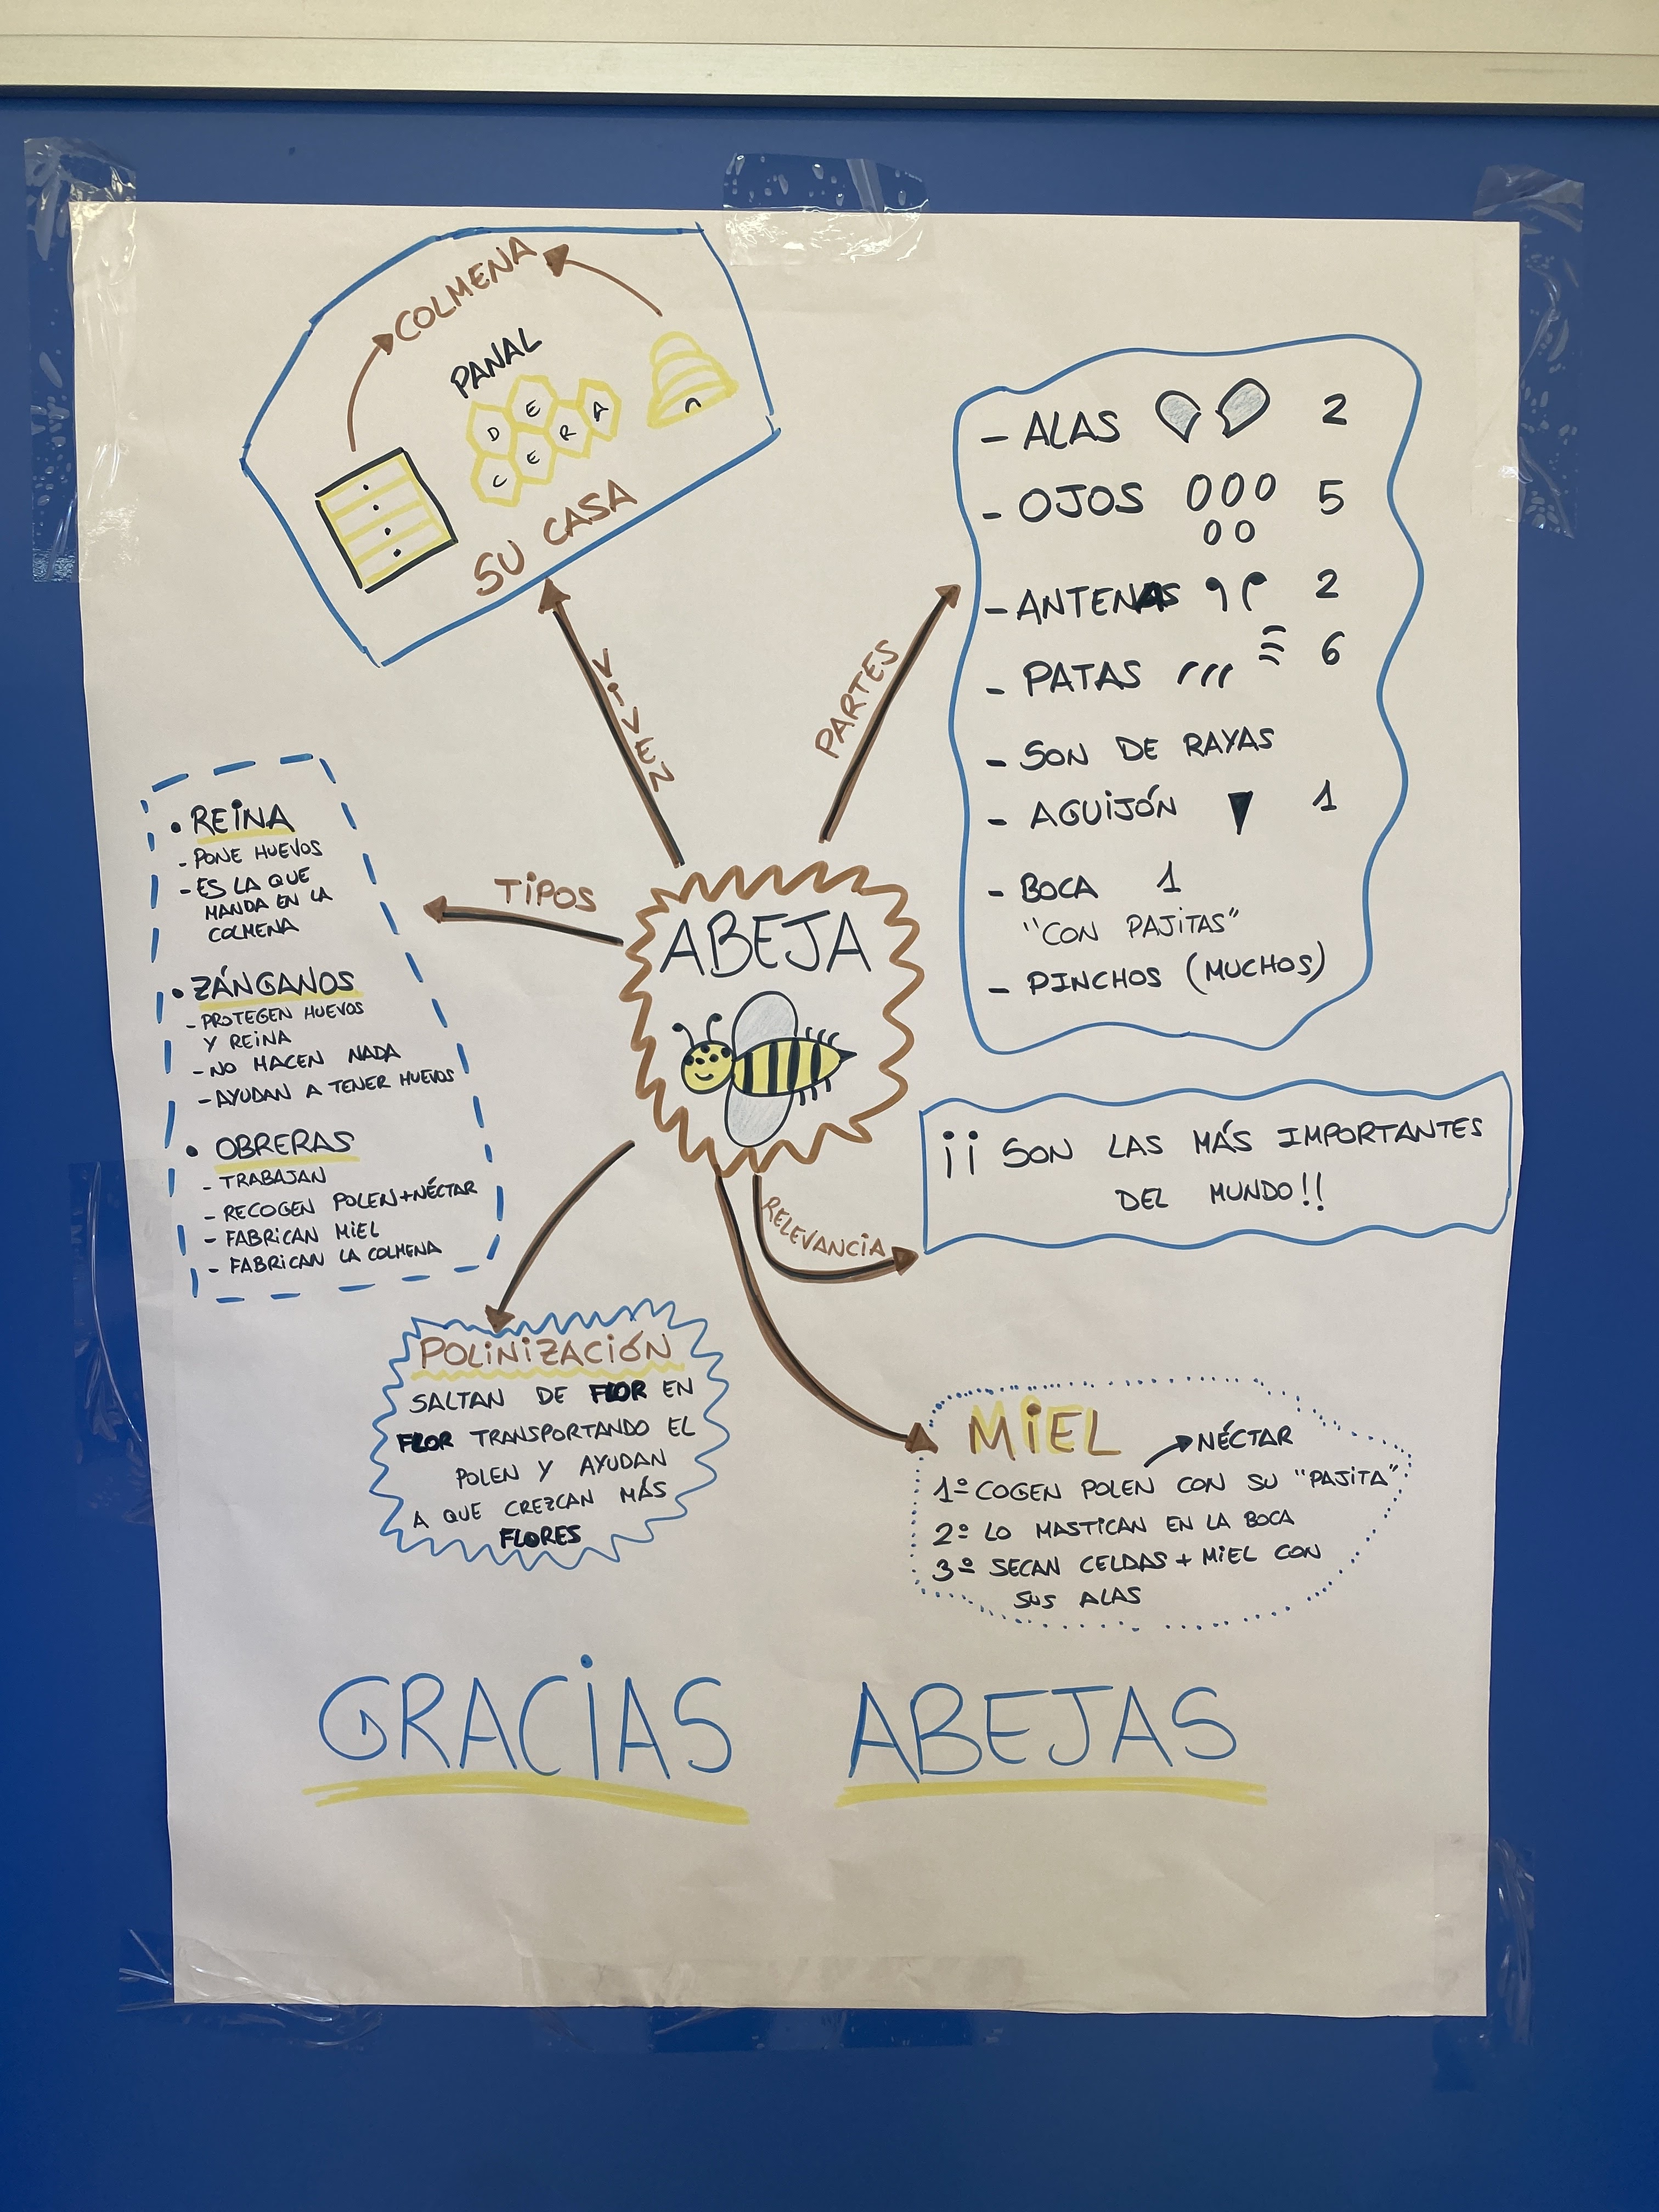 COLMENA
PANAL
DE
CERA
SU CASA
VIVEN
PARTES
- ALAS 2
- OJOS 5
- ANTENAS 2
- PATAS 6
- SON DE RAYAS
- AGUIJÓN 1
- BOCA 1
"CON PAJITAS"
- PINCHOS (MUCHOS)
TIPOS
• REINA
- PONE HUEVOS
- ES LA QUE
MANDA EN LA
COLMENA
• ZÁNGANOS
- PROTEGEN HUEVOS
Y REINA
- NO HACEN NADA
- AYUDAN A TENER HUEVOS
• OBRERAS
- TRABAJAN
- RECOGEN POLEN+NÉCTAR
- FABRICAN MIEL
- FABRICAN LA COLMENA
ABEJA
RELEVANCIA
¡¡ SON LAS MÁS IMPORTANTES
DEL MUNDO!!
POLINIZACIÓN
SALTAN DE FLOR EN
FLOR TRANSPORTANDO EL
POLEN Y AYUDAN
A QUE CREZCAN MÁS
FLORES
MIEL
NÉCTAR
1º COGEN POLEN CON SU "PAJITA"
2º LO MASTICAN EN LA BOCA
3º SECAN CELDAS + MIEL CON
SUS ALAS
GRACIAS ABEJAS